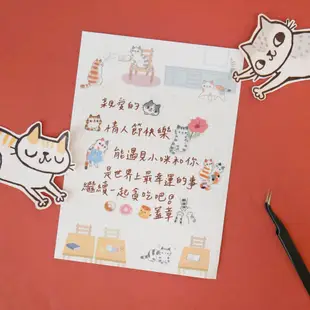 親愛的
情人節快樂
能遇見小咪和你
是世界上最幸運的事
繼續一起貪吃吧!
羞羞